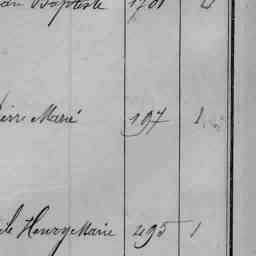 Baptiste 1701
Pierre Marie 197 1
Henry Marie 495 1